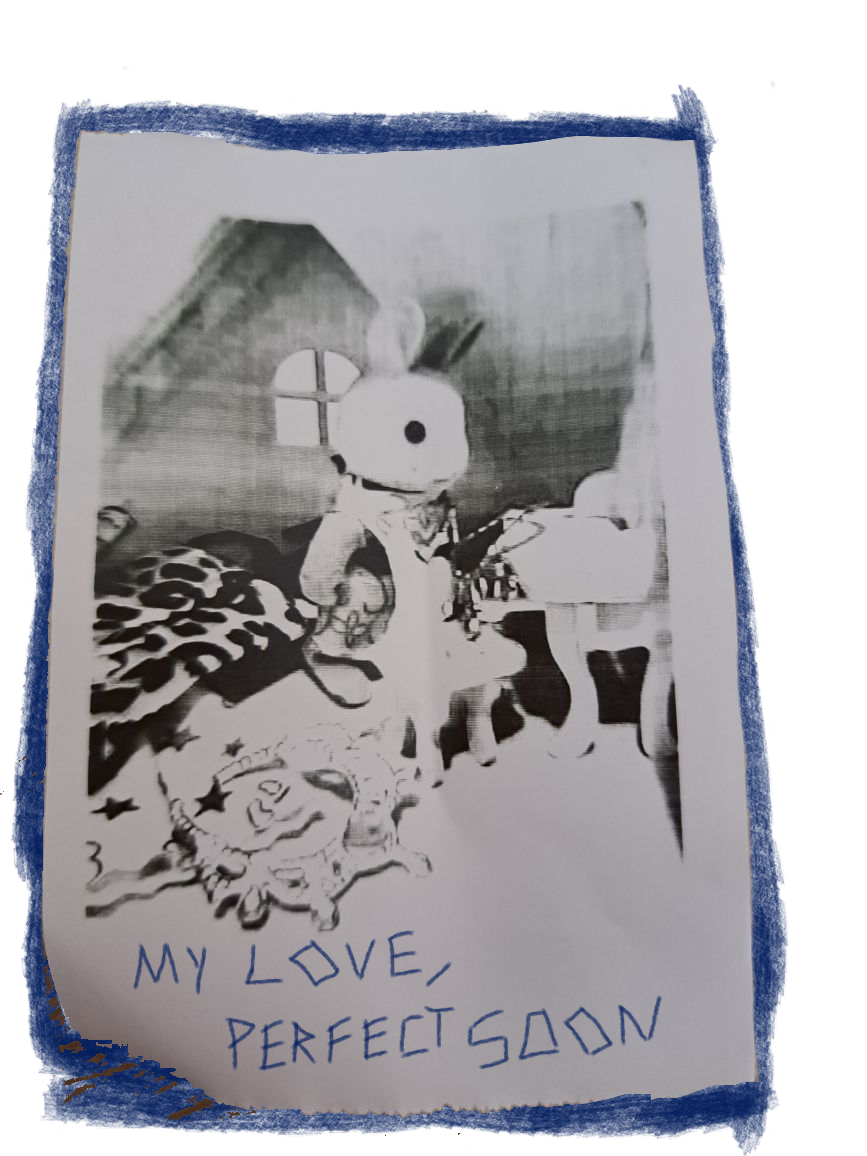 MY LOVE,
PERFECT SOON